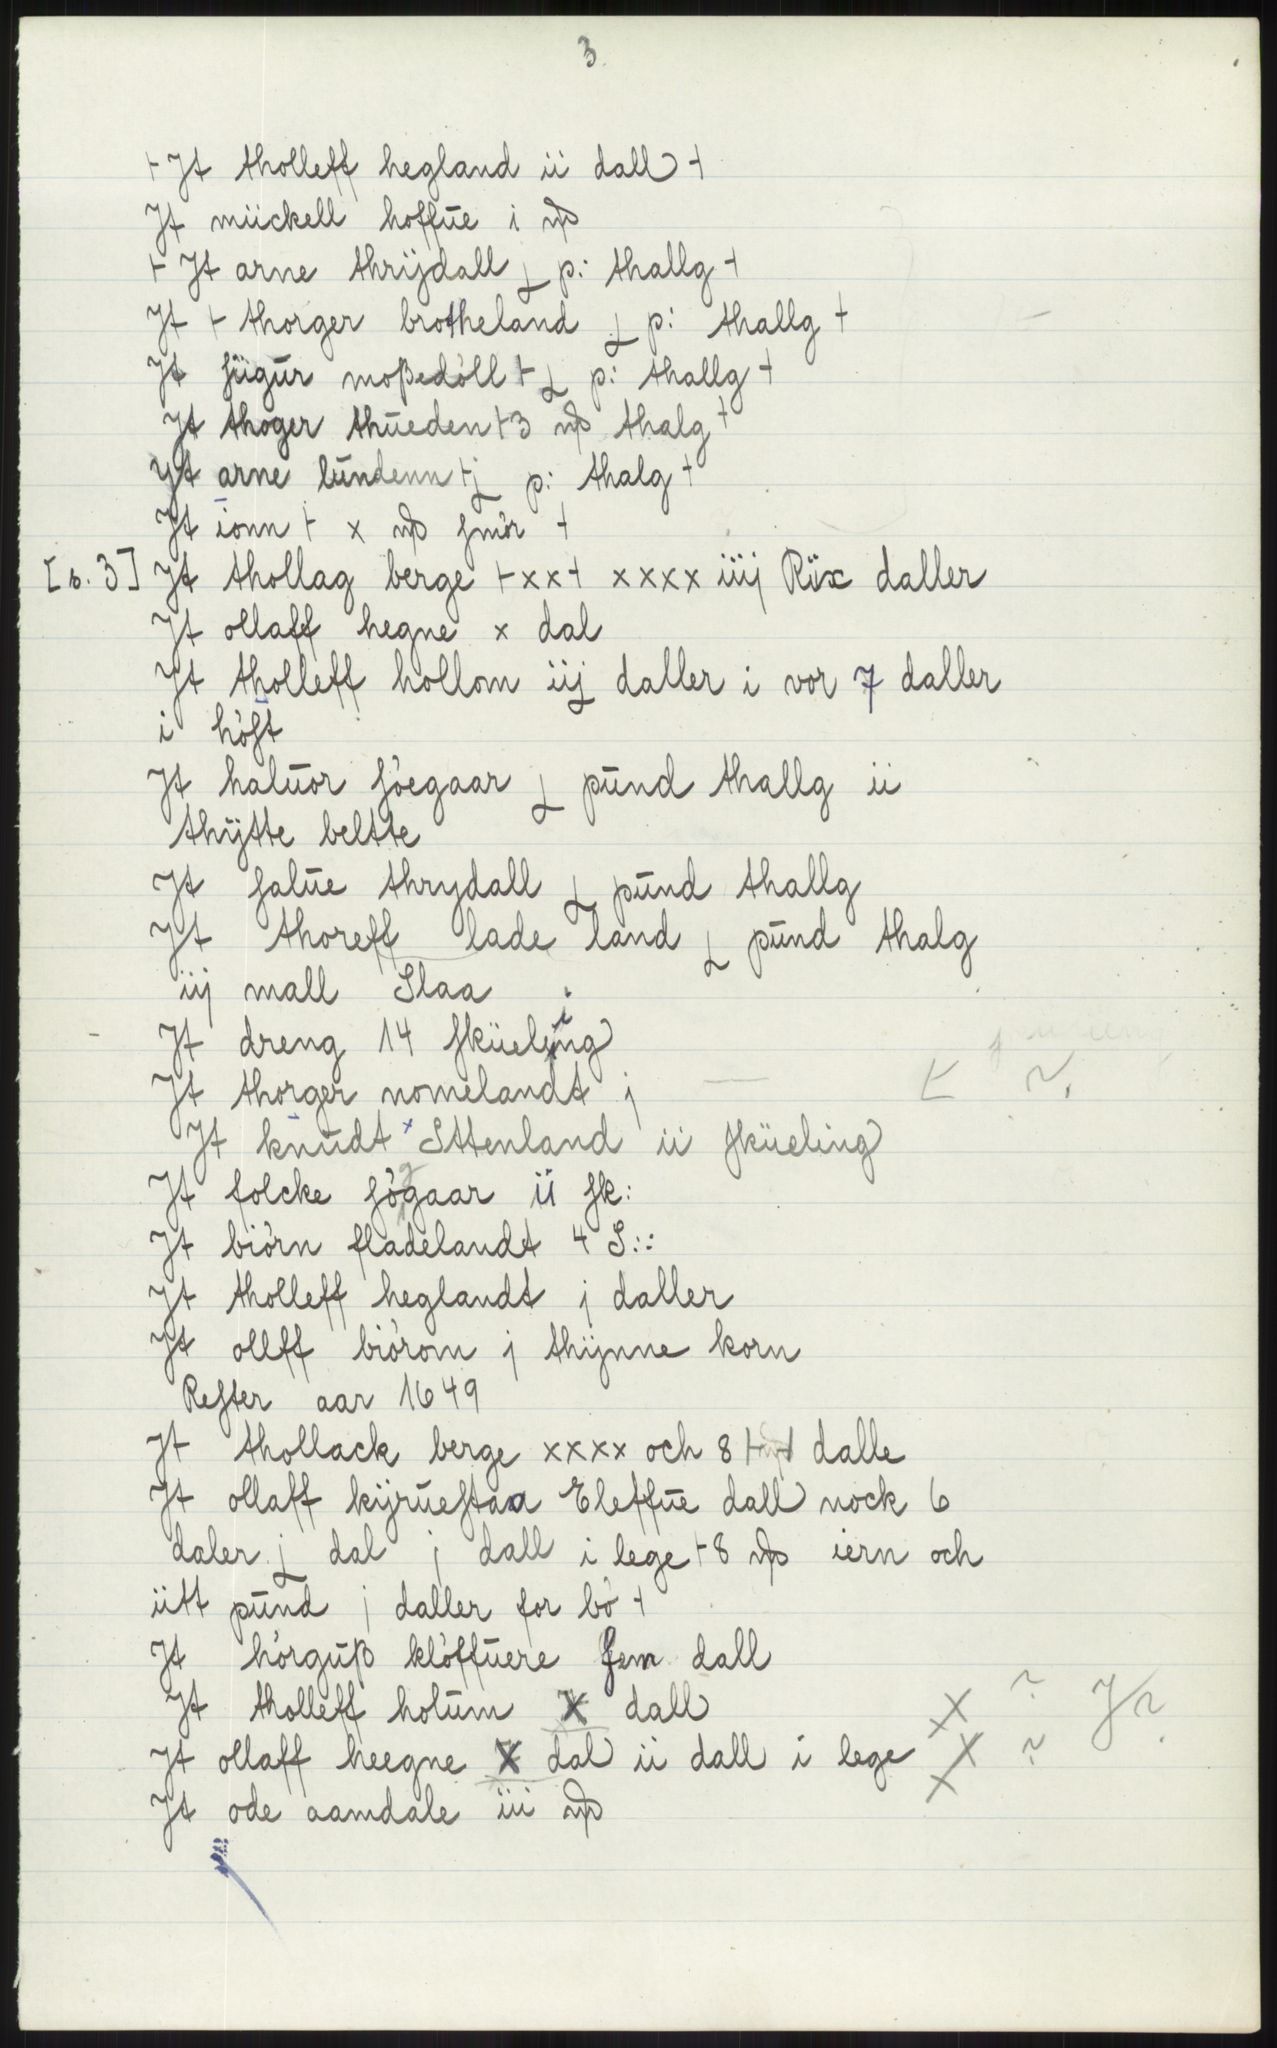 3.
⊢ Jt tholleff hegland ii dall ⊣
Jt mückell hoffūe i
⊢ Jt arne thrijdall p: thallg ⊣
Jt ⊢ thorger brotheland p: thallg ⊣
Jt ſügūr moßedòll ⊢ p: thallg ⊣
Jt thoger thūeden ⊢ 3 thalg ⊣
Jt arne lūndenn ⊢ p: thalg ⊣
Jt ionn ⊢ x ſmòr ⊣
[s. 3] Jt thollag berge ⊢ xx ⊣ xxxx iiij Rüx daller
Jt ollaff hegne x dal
Jt tholleff hollom iij daller i vor 7 daller
i hòſt
Jt halūor ſòegaar pūnd thallg ii
thÿtte beltte
Jt ſalūe thrydall pūnd thallg
Jt thoreff lade land pūnd thalg
iij mall Slaa
Jt dreng 14 ſküeling
Jt thorger nomelandt j
Jt knūdt x Sttenland ii ſküeling
Jt folcke ſògaar ii ſk:
Jt biòrn fladelandt 4 S::
Jt tholleff heglandt j daller
Jt ollff biòrom j thÿnne korn
Reſter aar 1649
Jt thollack berge xxxx och 8 dalle
Jt ollaff kÿrūeſtaa Eleffūe dall nock 6
daler dal j dall i lege ⊢ 8 iern och
ütt pūnd j daller for bò ⊣
Jt hòrgūß klòffūere fem dall
Jt tholleff holūm X dall X ?
Jt ollaff heegne X dal ii dall i lege X ?
Jt ode aamdale iii